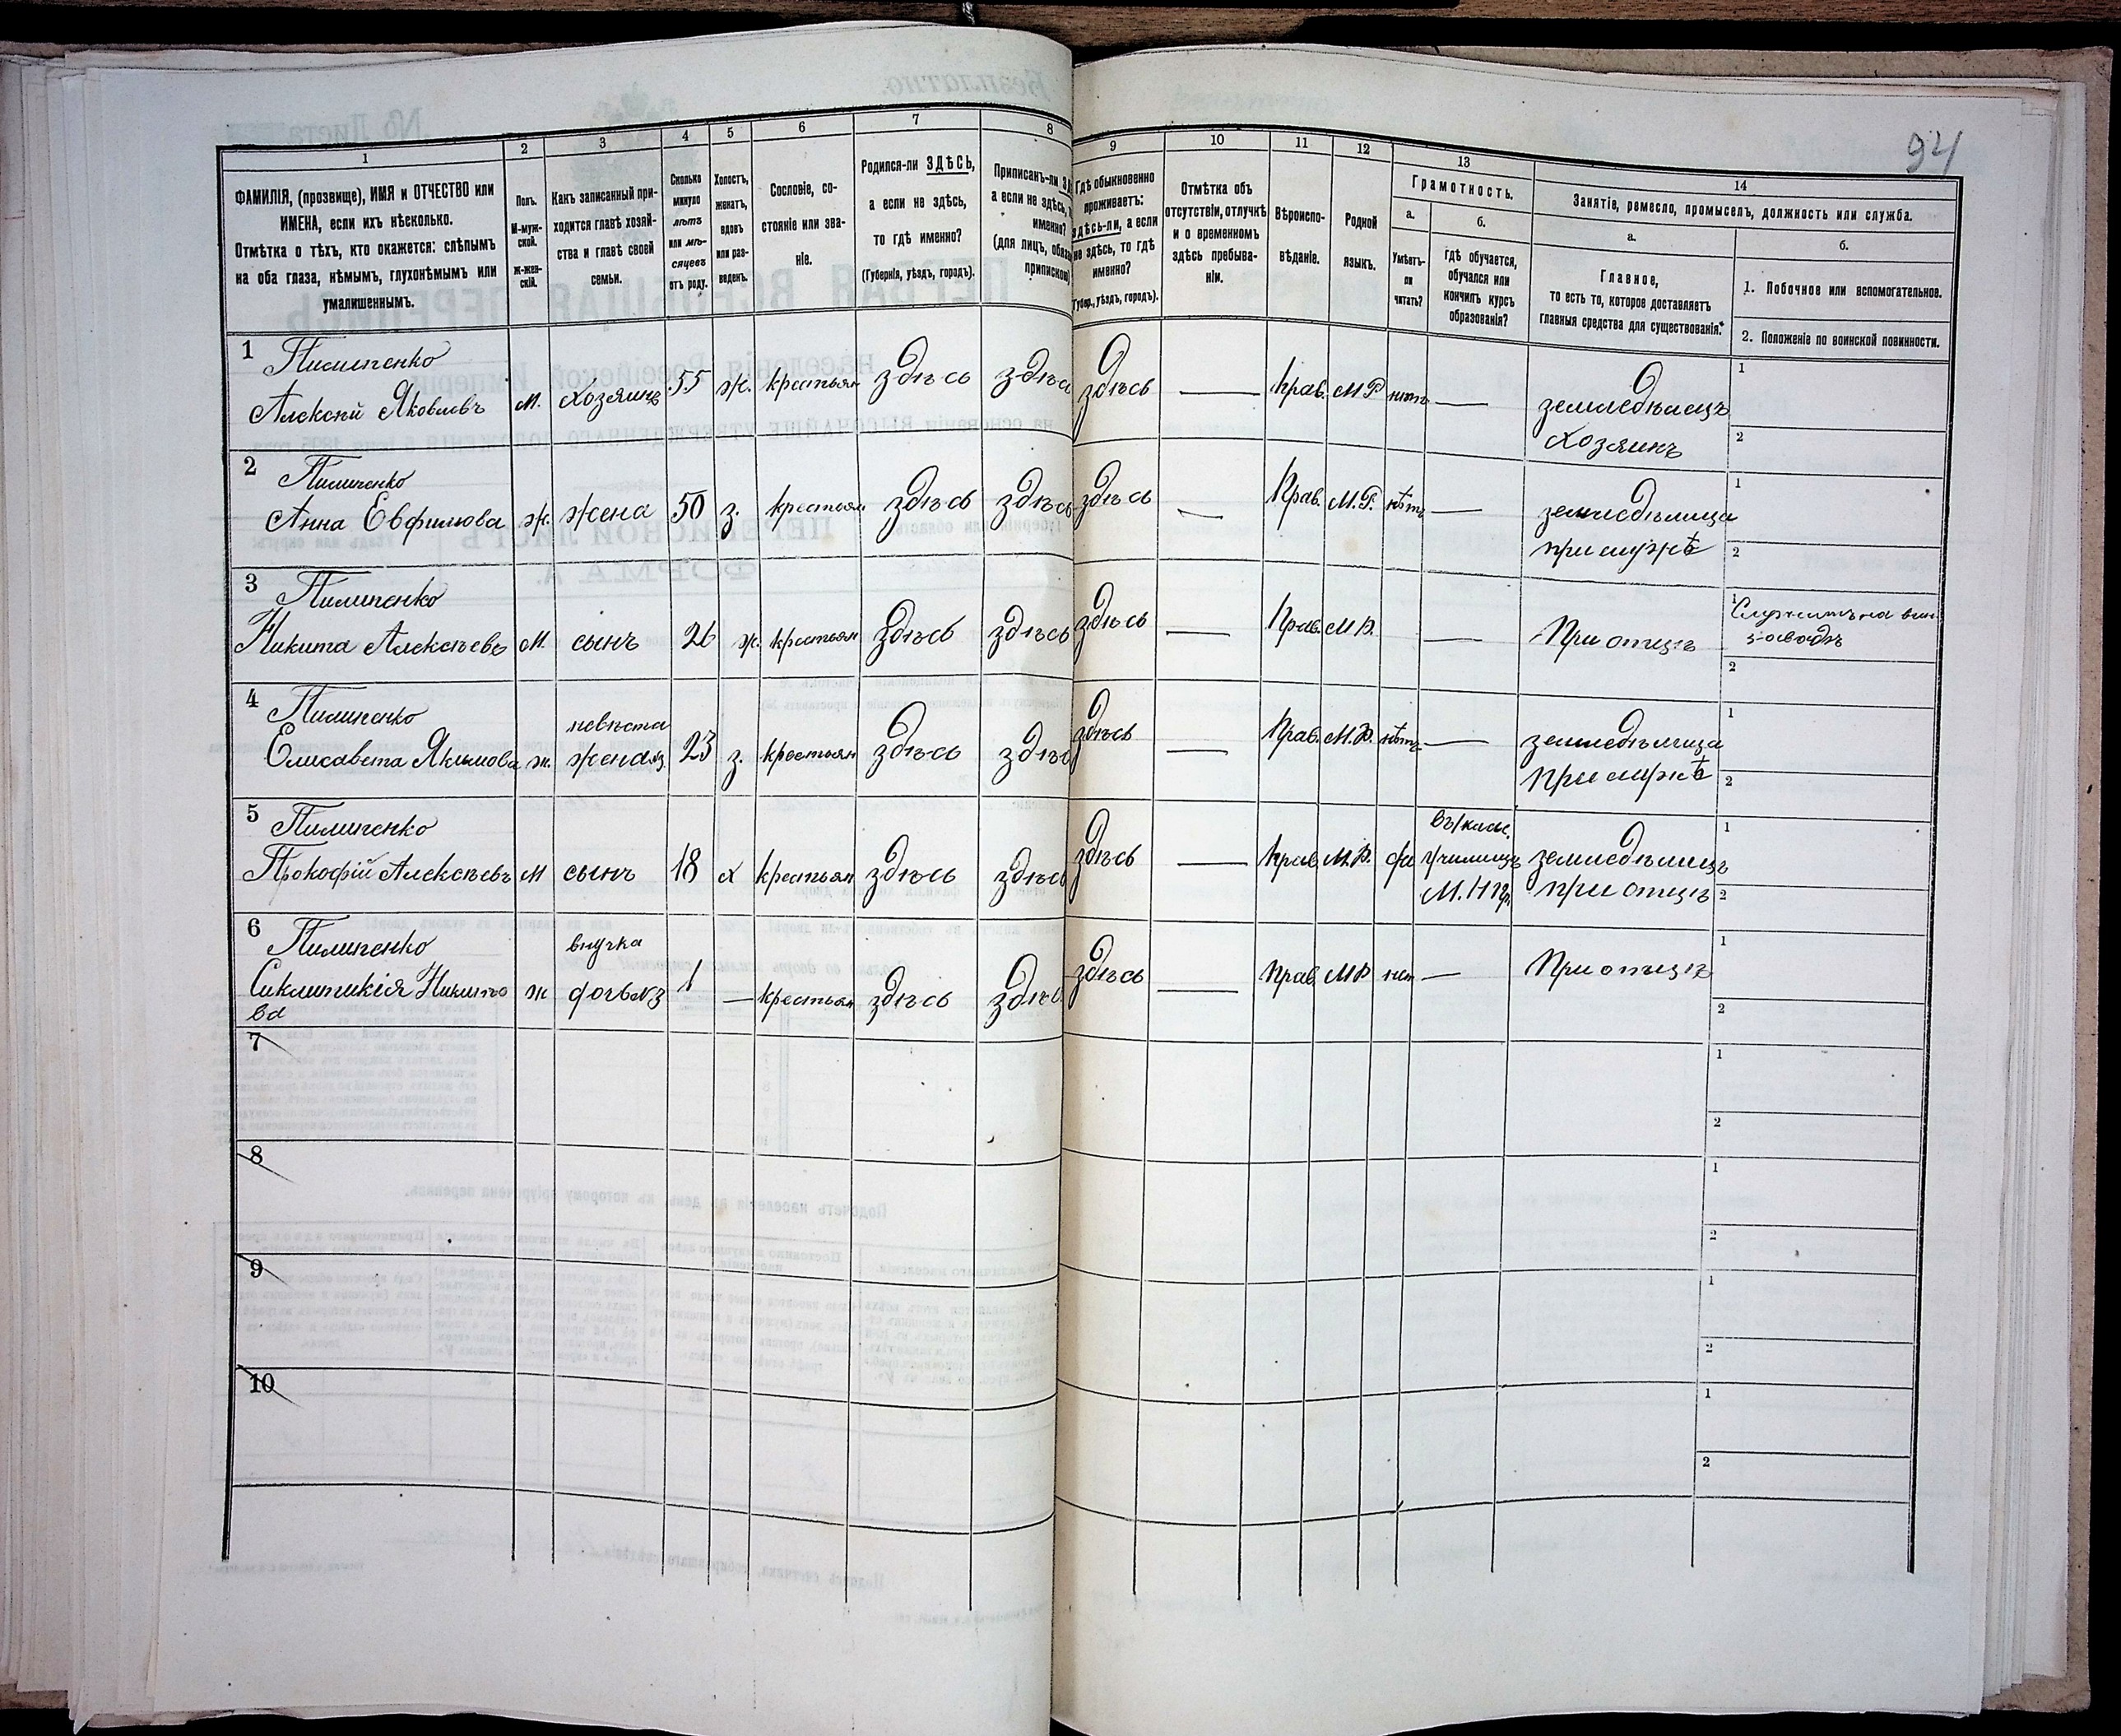 94
1
2
3
4
5
6
7
8
9
10
11
12
13
14
ФАМИЛІЯ, (прозвище), ИМЯ и ОТЧЕСТВО или
ИМЕНА, если ихъ нѣсколько.
Отмѣтка о тѣхъ, кто окажется: слѣпымъ
на оба глаза, нѣмымъ, глухонѣмымъ или
умалишеннымъ.
Полъ.
М-муж-
ской.
Ж-жен-
скій.
Какъ записанный при-
ходится главѣ хозяй-
ства и главѣ своей
семьи.
Сколько
минуло
лѣтъ
или мѣ-
сяцевъ
отъ роду.
Холостъ,
женатъ,
вдовъ
или раз-
веденъ.
Сословіе, со-
стояніе или зва-
ніе.
Родился-ли ЗДѢСЬ,
а если не здѣсь,
то гдѣ именно?
(Губернія, уѣздъ, городъ).
Приписанъ-ли
а если не здѣсь,
именно?
(для лицъ,
Гдѣ обыкновенно
проживаетъ:
здѣсь-ли, а если
не здѣсь, то гдѣ
именно?
(Губер., уѣздъ, городъ).
Отмѣтка объ
отсутствіи, отлучкѣ
и о временномъ
здѣсь пребыва-
ніи.
Вѣроиспо-
вѣданіе.
Родной
языкъ.
Грамотность.
а.
Умѣетъ-
ли
читать?
б.
гдѣ обучается,
обучался или
кончилъ курсъ
образованія?
Занятіе, ремесло, промыселъ, должность или служба.
а.
Главное,
то есть то, которое доставляетъ
главныя средства для существованія.
б.
1. Побочное или вспомогательное.
2. Положеніе по воинской повинности.
1 Пилипенко
Алексѣй Яковлевъ м. Хозяинъ 55 ж. крестьян здѣсь здѣсь здѣсь — Прав. М Р нѣтъ — земледѣлецъ 1
хозяинъ 2
2 Пилипенко
Анна Евфимова ж. жена 50 з. крестьян здѣсь здѣсь здѣсь — Прав. М.Р. нѣтъ — земледѣлица 1
при мужѣ 2
3 Пилипенко
Никита Алексѣевъ М. сынъ 26 ж. крестьян здѣсь здѣсь здѣсь — Прав. М Р. — При отцѣ 1 Служитъ на вин.
заводѣ
2
4 Пилипенко невѣста
Елисавета Якимова ж. жена №3 23 з. крестьян здѣсь здѣсь здѣсь — Прав. М.Р. нѣтъ — земледѣлица 1
при мужѣ 2
5 Пилипенко
Прокофій Алексѣевъ М сынъ 18 х крестьян здѣсь здѣсь здѣсь — Прав. М.Р. да училищѣ земледѣлецъ 1
М.Н.Пр. при отцѣ 2
6 Пилипенко внучка
Никито ж дочь №3 1 — крестьян здѣсь здѣсь здѣсь — Прав. М Р нет — При отцѣ 1
ва 2
7 1
2
8 1
2
9 1
2
10 1
2